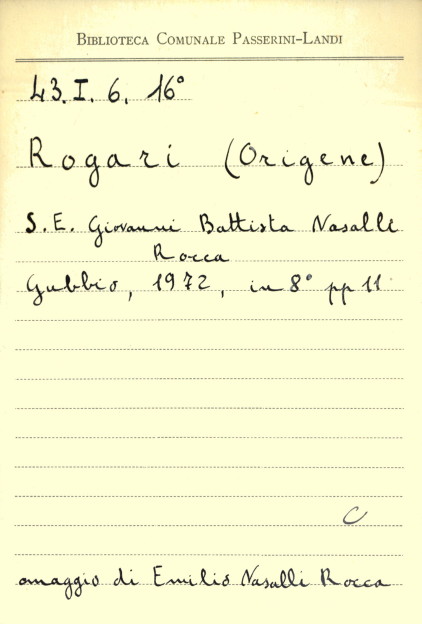 BIBLIOTECA COMUNALE PASSERINI-LANDI
43. I. 6. 16°
Rogari (Origene)
S. E. Giovanni Battista Nasalli
Rocca
Gubbio, 1972, in 8° pp 11
C
omaggio di Emilio Nasalli Rocca